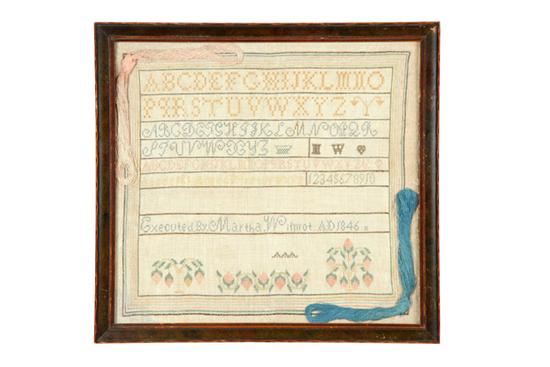 ABCDEFGHIJKLMNO
PQRSTUVWXYZ
ABCDEFGHIJKLMNOPQR
STUVWXYZ W
ABCDEFGHIJKLMNOPQRSTUVWXYZ
12345678910
Executed By Martha Wilmot AD 1846